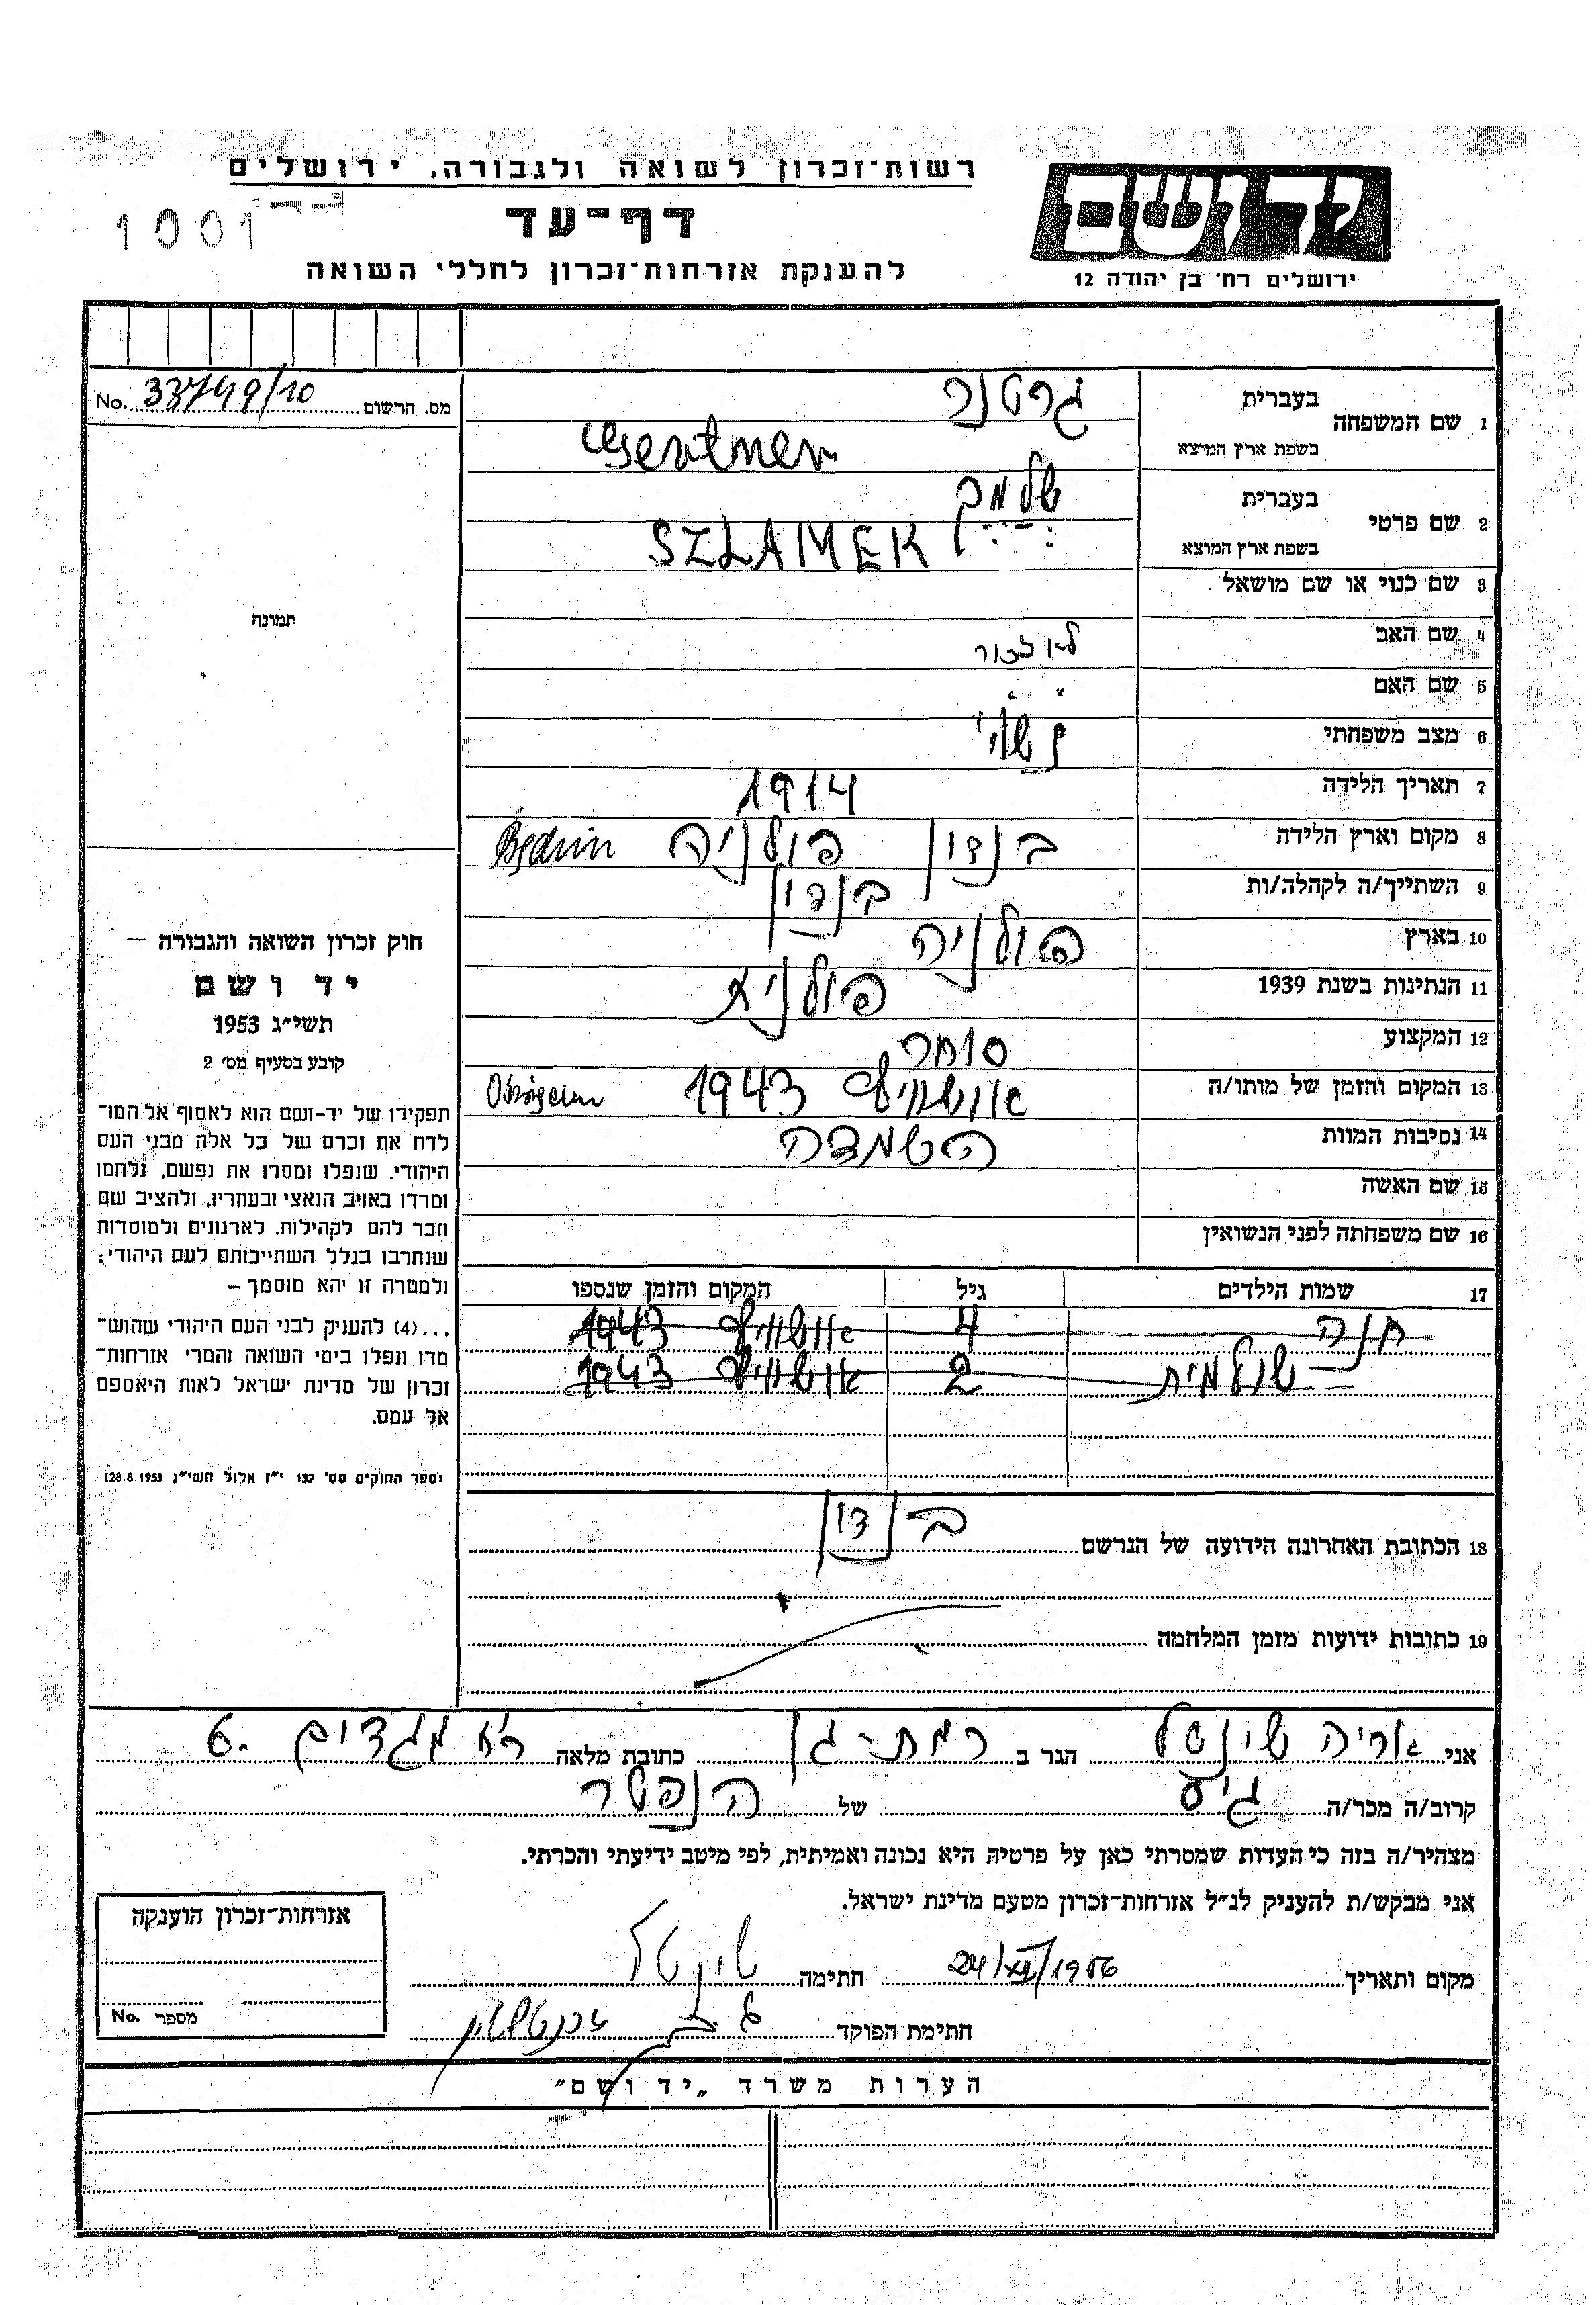 רשות־זכרון לשואה ולגבורה, ירושלים
יד ושם
דף־עד
1001
להענקת אזרחות־זכרון לחללי השואה
ירושלים רח' בן יהודה 12
מס. הרשום 33749/10 No.
1 שם המשפחה בעברית גרטנר
בשפת ארץ המוצא Gertner
2 שם פרטי בעברית שלמק
בשפת ארץ המוצא SZLAMEK
3 שם כנוי או שם מושאל
4 שם האב לא זכור
5 שם האם " "
6 מצב משפחתי נשוי
7 תאריך הלידה 1914
8 מקום וארץ הלידה בנדין פולניה Będzin
9 השתייך/ה לקהלה/ות בנדין
10 בארץ פולניה
11 הנתינות בשנת 1939 פולנית
12 המקצוע סוחר
13 המקום והזמן של מותו/ה אושוויץ 1943
14 נסיבות המוות השמדה
15 שם האשה
16 שם משפחתה לפני הנשואין
17 שמות הילדים גיל המקום והזמן שנספו
חנה 4 אושוויץ 1943
שולמית 2 אושוויץ 1943
18 הכתובת האחרונה הידועה של הנרשם בנדין
19 כתובות ידועות מזמן המלחמה
תמונה
חוק זכרון השואה והגבורה –
יד ושם
תשי"ג 1953
קובע בסעיף מס' 2
תפקידו של יד־ושם הוא לאסוף אל המו־
לדת את זכרם של כל אלה מבני העם
היהודי, שנפלו ומסרו את נפשם, נלחמו
ומרדו באויב הנאצי ובעוזריו, ולהציב שם
וזכר להם לקהילות, לארגונים ולמוסדות
שנחרבו בגלל השתייכותם לעם היהודי;
ולמטרה זו יהא מוסמך –
...(4) להעניק לבני העם היהודי שהוש־
מדו ונפלו בימי השואה והמרי אזרחות־
זכרון של מדינת ישראל לאות היאספם
אל עמם.
(ספר החוקים מס' 132 י"ז אלול תשי"ג 28.8.1953)
אני אריה שינטל הגר ב רמת-גן כתובת מלאה רח מגדים 6.
קרוב/ה מכר/ה גיס של הנפטר
מצהיר/ה בזה כי העדות שמסרתי כאן על פרטיה היא נכונה ואמיתית, לפי מיטב ידיעתי והכרתי.
אני מבקש/ת להעניק לנ"ל אזרחות־זכרון מטעם מדינת ישראל.
מקום ותאריך 1956 חתימה שינטל
חתימת הפוקד
אזרחות־זכרון הוענקה
מספר No.
הערות משרד „יד ושם"